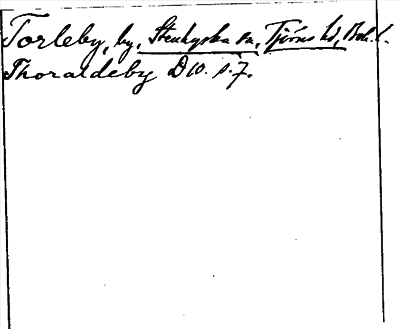 Torleby, by, Stenkyrka sn, Tjörns hd, Boh. l.
Thoraldeby DW. s. 7.